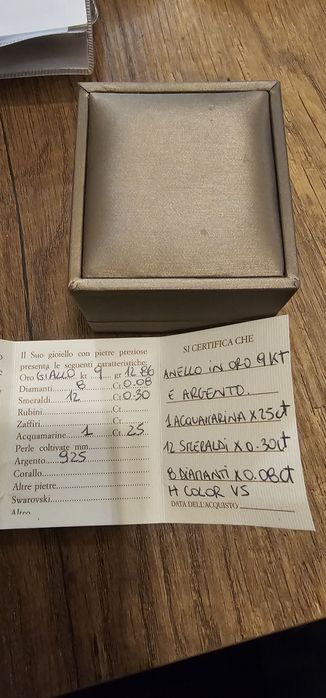 Il Suo gioiello con pietre preziose
presenta le seguenti caratteristiche:
Oro GIALLO kt 9 gr 12.86
Diamanti 8 Ct 0.08
Smeraldi 12 Ct 0.30
Rubini Ct
Zaffiri Ct
Acquamarine 1 Ct 25
Perle coltivate mm
Argento 925
Corallo
Altre pietre
Swarovski
Altro
SI CERTIFICA CHE
ANELLO IN ORO 9KT
E ARGENTO.
1 ACQUAMARINA X 25ct
12 SMERALDI X 0.30ct
8 DIAMANTI X 0.08ct
H COLOR VS
DATA DELL'ACQUISTO